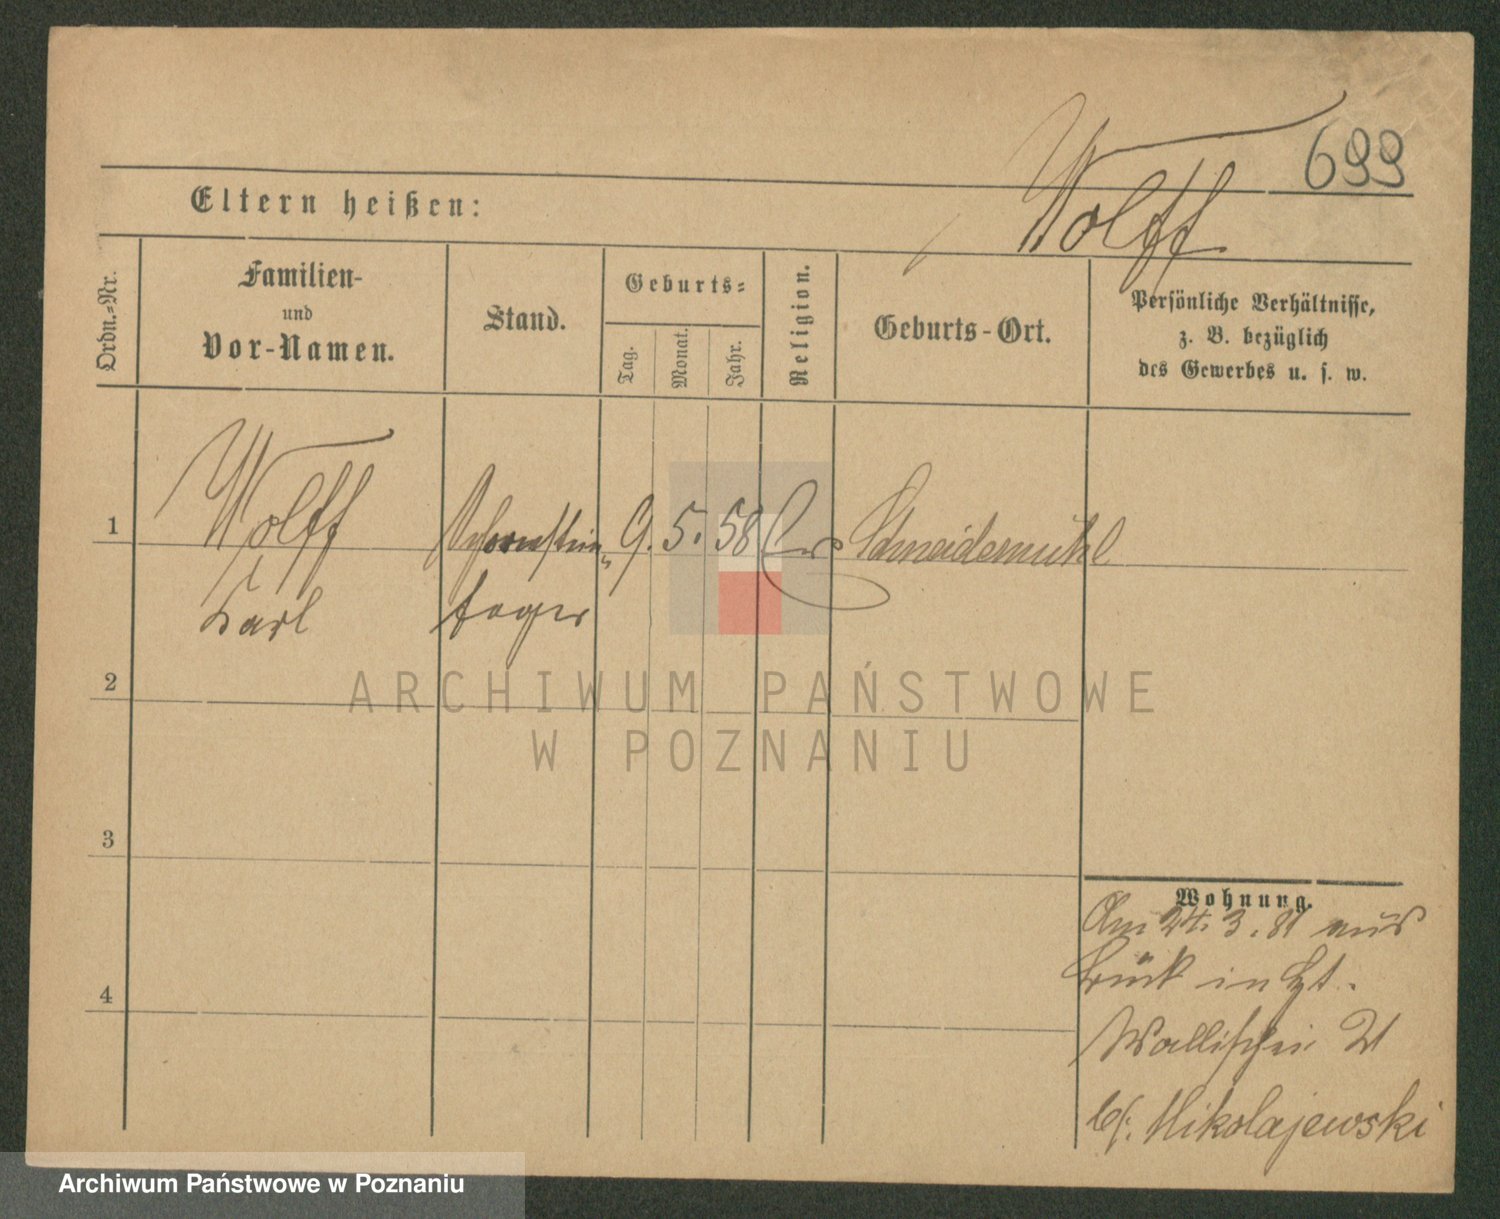 Wolff
699
Eltern heißen:
Ordn.-Nr.
Familien-
und
Vor-Namen.
Stand.
Geburts-
Tag.
Monat.
Jahr.
Religion.
Geburts-Ort.
Persönliche Verhältnisse,
z. B. bezüglich
des Gewerbes u. s. w.
1
Wolff
Karl
Schornstein-
feger
9. 5. 58
Schneidemühl
2
3
4
ARCHIWUM PAŃSTWOWE
W POZNANIU
Wohnung.
Am 24. 3. 81 aus
in
Wallischei 21
bei Mikolajewski
Archiwum Państwowe w Poznaniu